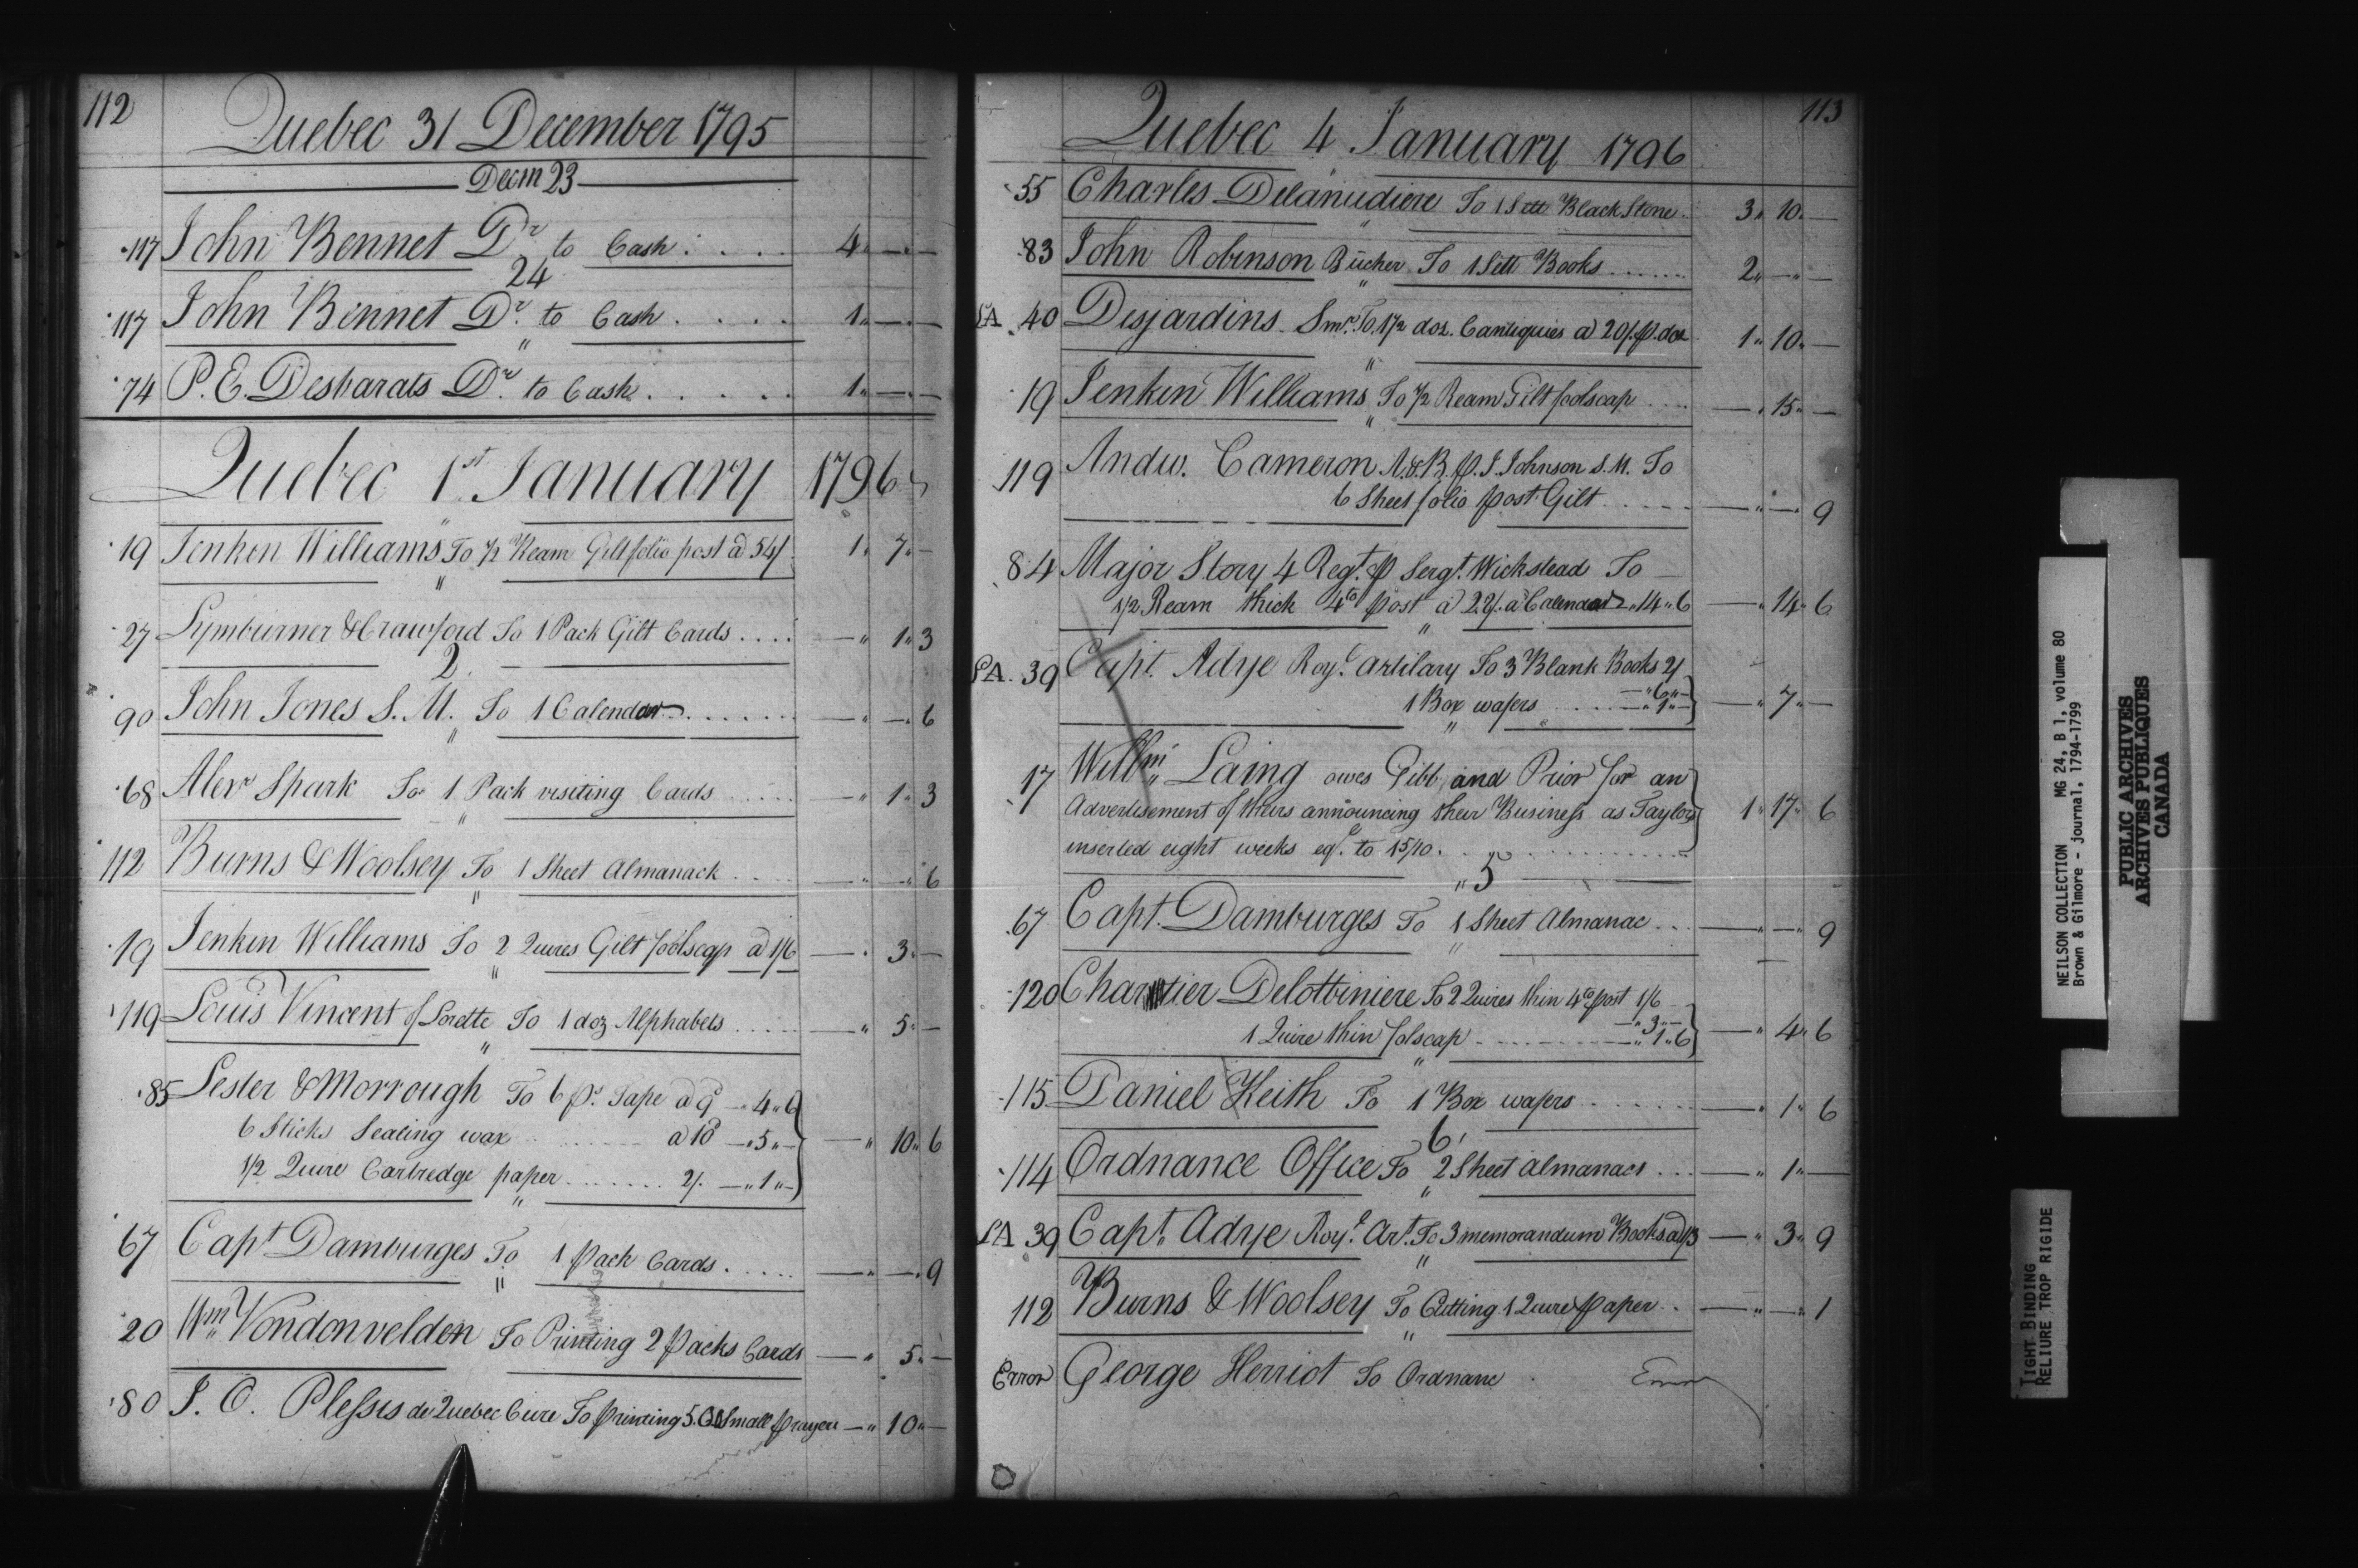 112
Quebec 31 December 1795
Decm 23
117 John Bennet Dr to Cash . . . . 4 " — " —
24
117 John Bennet Dr. to Cash . . . . 1 " — " —
"
74 P. E. Desbarats Dr. to Cash . . . . . 1 " — " —
Quebec 1st January 1796
"
19 Jenken Williams To 1/2 Ream Gilt folio post a 54/ 1 " 7 " —
"
27 Lymburner & Crawford To 1 Pack Gilt Cards . . . . — " 1 " 3
2
90 John Jones S. M. To 1 Calendar . . . . . . — " — " 6
"
68 Alexr Spark To 1 Pack visiting Cards . . . . . — " 1 " 3
"
112 Burns & Woolsey To 1 Sheet Almanack . . . . — " — " 6
"
19 Jenken Williams To 2 Quires Gilt foolscap a 1/6 — " 3 " —
"
119 Louis Vincent of Lorette To 1 doz Alphabets . . . . . — " 5 " —
"
85 Lester & Morrough To 6 ps. Tape a 9d — " 4 " 6
6 Sticks Sealing wax . . . . . . a 10d — " 5 " — — " 10 " 6
1/2 Quire Cartredge paper . . . . . . . 2/. — " 1 " —
"
67 Capt Damburges To 1 Pack Cards . . . . . — " — " 9
"
20 Wm Vondonvelden To Printing 2 Packs Cards — " 5 " —
80 J. O. Plessis de Quebec Cure To printing 5.00 Small prayers — " 10 " —
113
Quebec 4 January 1796
"
55 Charles Delanudiere To 1 Sett Black Stone . 3 " 10 " —
"
83 John Robinson Bucher To 1 Sett Books . . . . . . . 2 " — " —
"
LA 40 Desjardins Smr. To 1 1/2 doz. Cantiquies a 20/. p. doz 1 " 10 " —
"
19 Jenken Williams To 1/2 Ream Gilt foolscap . . . . — " 15 " —
"
119 Andw. Cameron A. & B. p. J. Johnson S. M. To
6 Sheet folio post Gilt . . . . . — " — " 9
84 Major Story 4 Regt. p Sergt. Wickstead To —
1/2 Ream thick 4to post a 22/. a Calendar " 14 " 6 — " 14 " 6
"
LA. 39 Capt. Adye Royl. Artilary To 3 Blank Books 2/ — " 6 " —
1 Box wafers . . . . . — " 1 " — — " 7 " —
"
17 Willm. Laing owes Gibb and Prior for an
Advertisement of theirs announcing their Business as Taylors 1 " 17 " 6
inserted eight weeks eql. to 15/10 . . . . . . . . . . .
" 5
67 Capt. Damburges To 1 Sheet Almanac . . . — " — " 9
"
120 Chartier Delotbiniere To 2 Quires thin 4to post 1/6 — " 3 " —
1 Quire thin folscap . . . . . . . . . — " 1 " 6 — " 4 " 6
"
115 Daniel Keith To 1 Box wafers . . . . . . . — " 1 " 6
6
114 Ordnance Office To 2 Sheet Almanacs . . . — " 1 " —
"
LA 39 Capt. Adye Royl. Art. To 3 memorandum Books a 1/3 — " 3 " 9
"
112 Burns & Woolsey To Cutting 1 Quire paper . . — " — " 1
"
Error George Herriot To Ordnanc . Error
NEILSON COLLECTION MG 24, B 1, volume 80
Brown & Gilmore - journal, 1794-1799
PUBLIC ARCHIVES
ARCHIVES PUBLIQUES
CANADA
TIGHT BINDING
RELIURE TROP RIGIDE